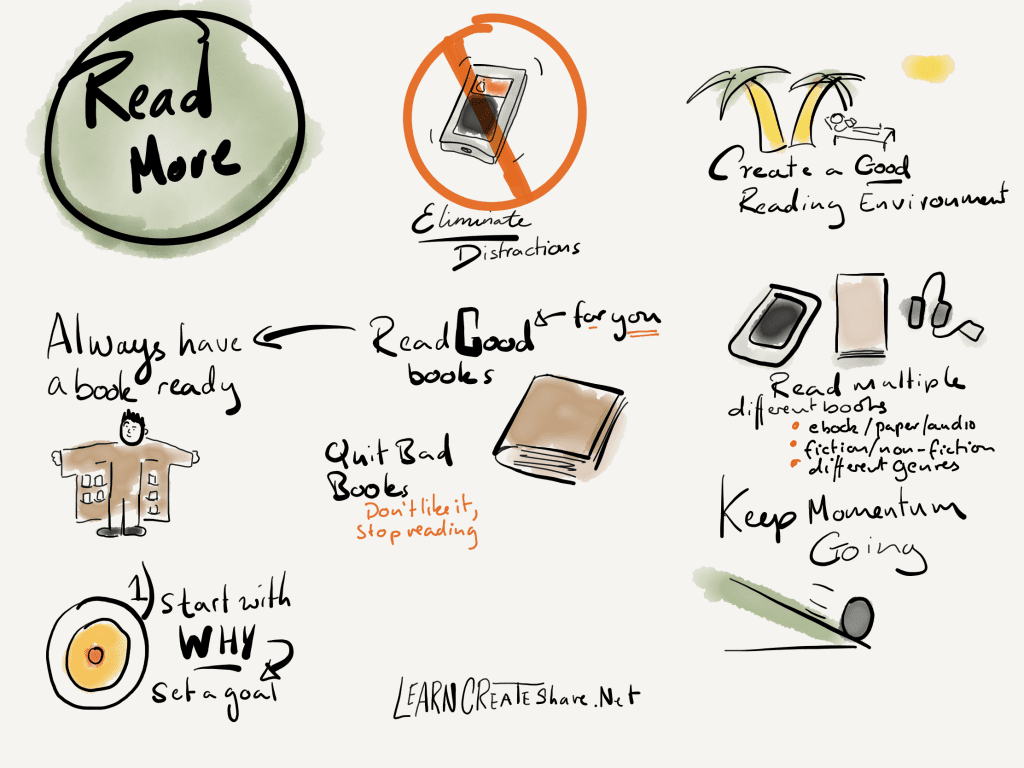 Read
More
Eliminate
Distractions
Create a Good
Reading Environment
Always have
a book ready
Read Good
books
for you
Read multiple
different books
ebook/paper/audio
fiction/non-fiction
different genres
Quit Bad
Books
Don't like it,
stop reading
Keep Momentum
Going
1) Start with
WHY
Set a goal
LEARNCREATEShare.Net